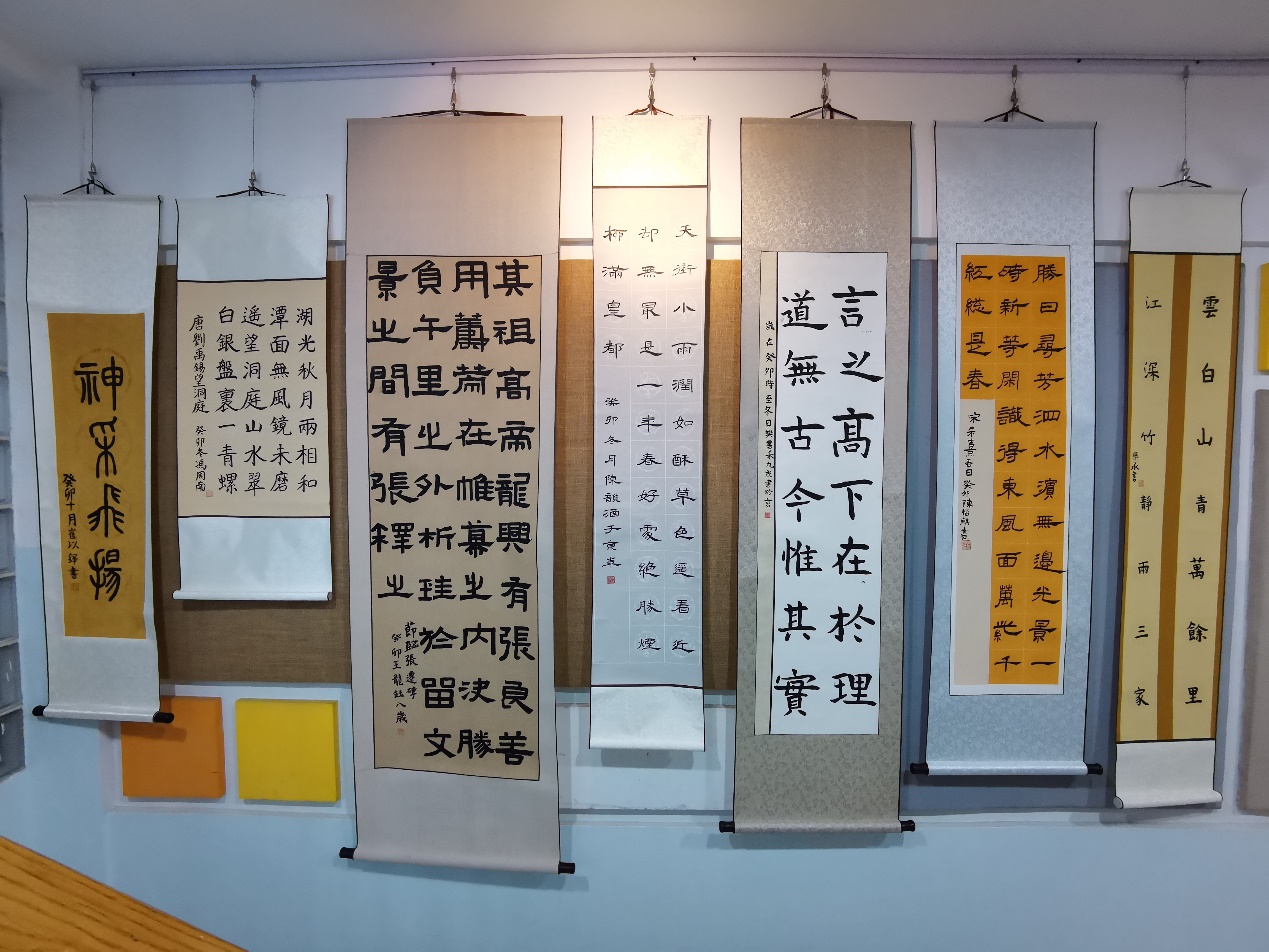 神采飛揚
癸卯十月崔以鐸書
湖光秋月兩相和
潭面無風鏡未磨
遙望洞庭山水翠
白銀盤裏一青螺
唐劉禹錫望洞庭
癸卯冬馮周南
其祖高帝龍興有張良善
用籌策在帷幕之内決勝
負千里之外析珪於留文
景之間有張釋之
節臨張遷碑
癸卯王龍鈺八歲
天街小雨潤如酥草色遥看近
却無最是一年春好處絶勝煙
柳滿皇都
癸卯冬月陳韻涵于
言之高下在於理
道無古今惟其實
歲在癸卯時至冬日樊書禾九歲書於京
勝日尋芳泗水濱無邊光景一
時新等閑識得東風面萬紫千
紅總是春
宋朱熹春日癸卯陳怡
雲白山青萬餘里
江深竹靜兩三家